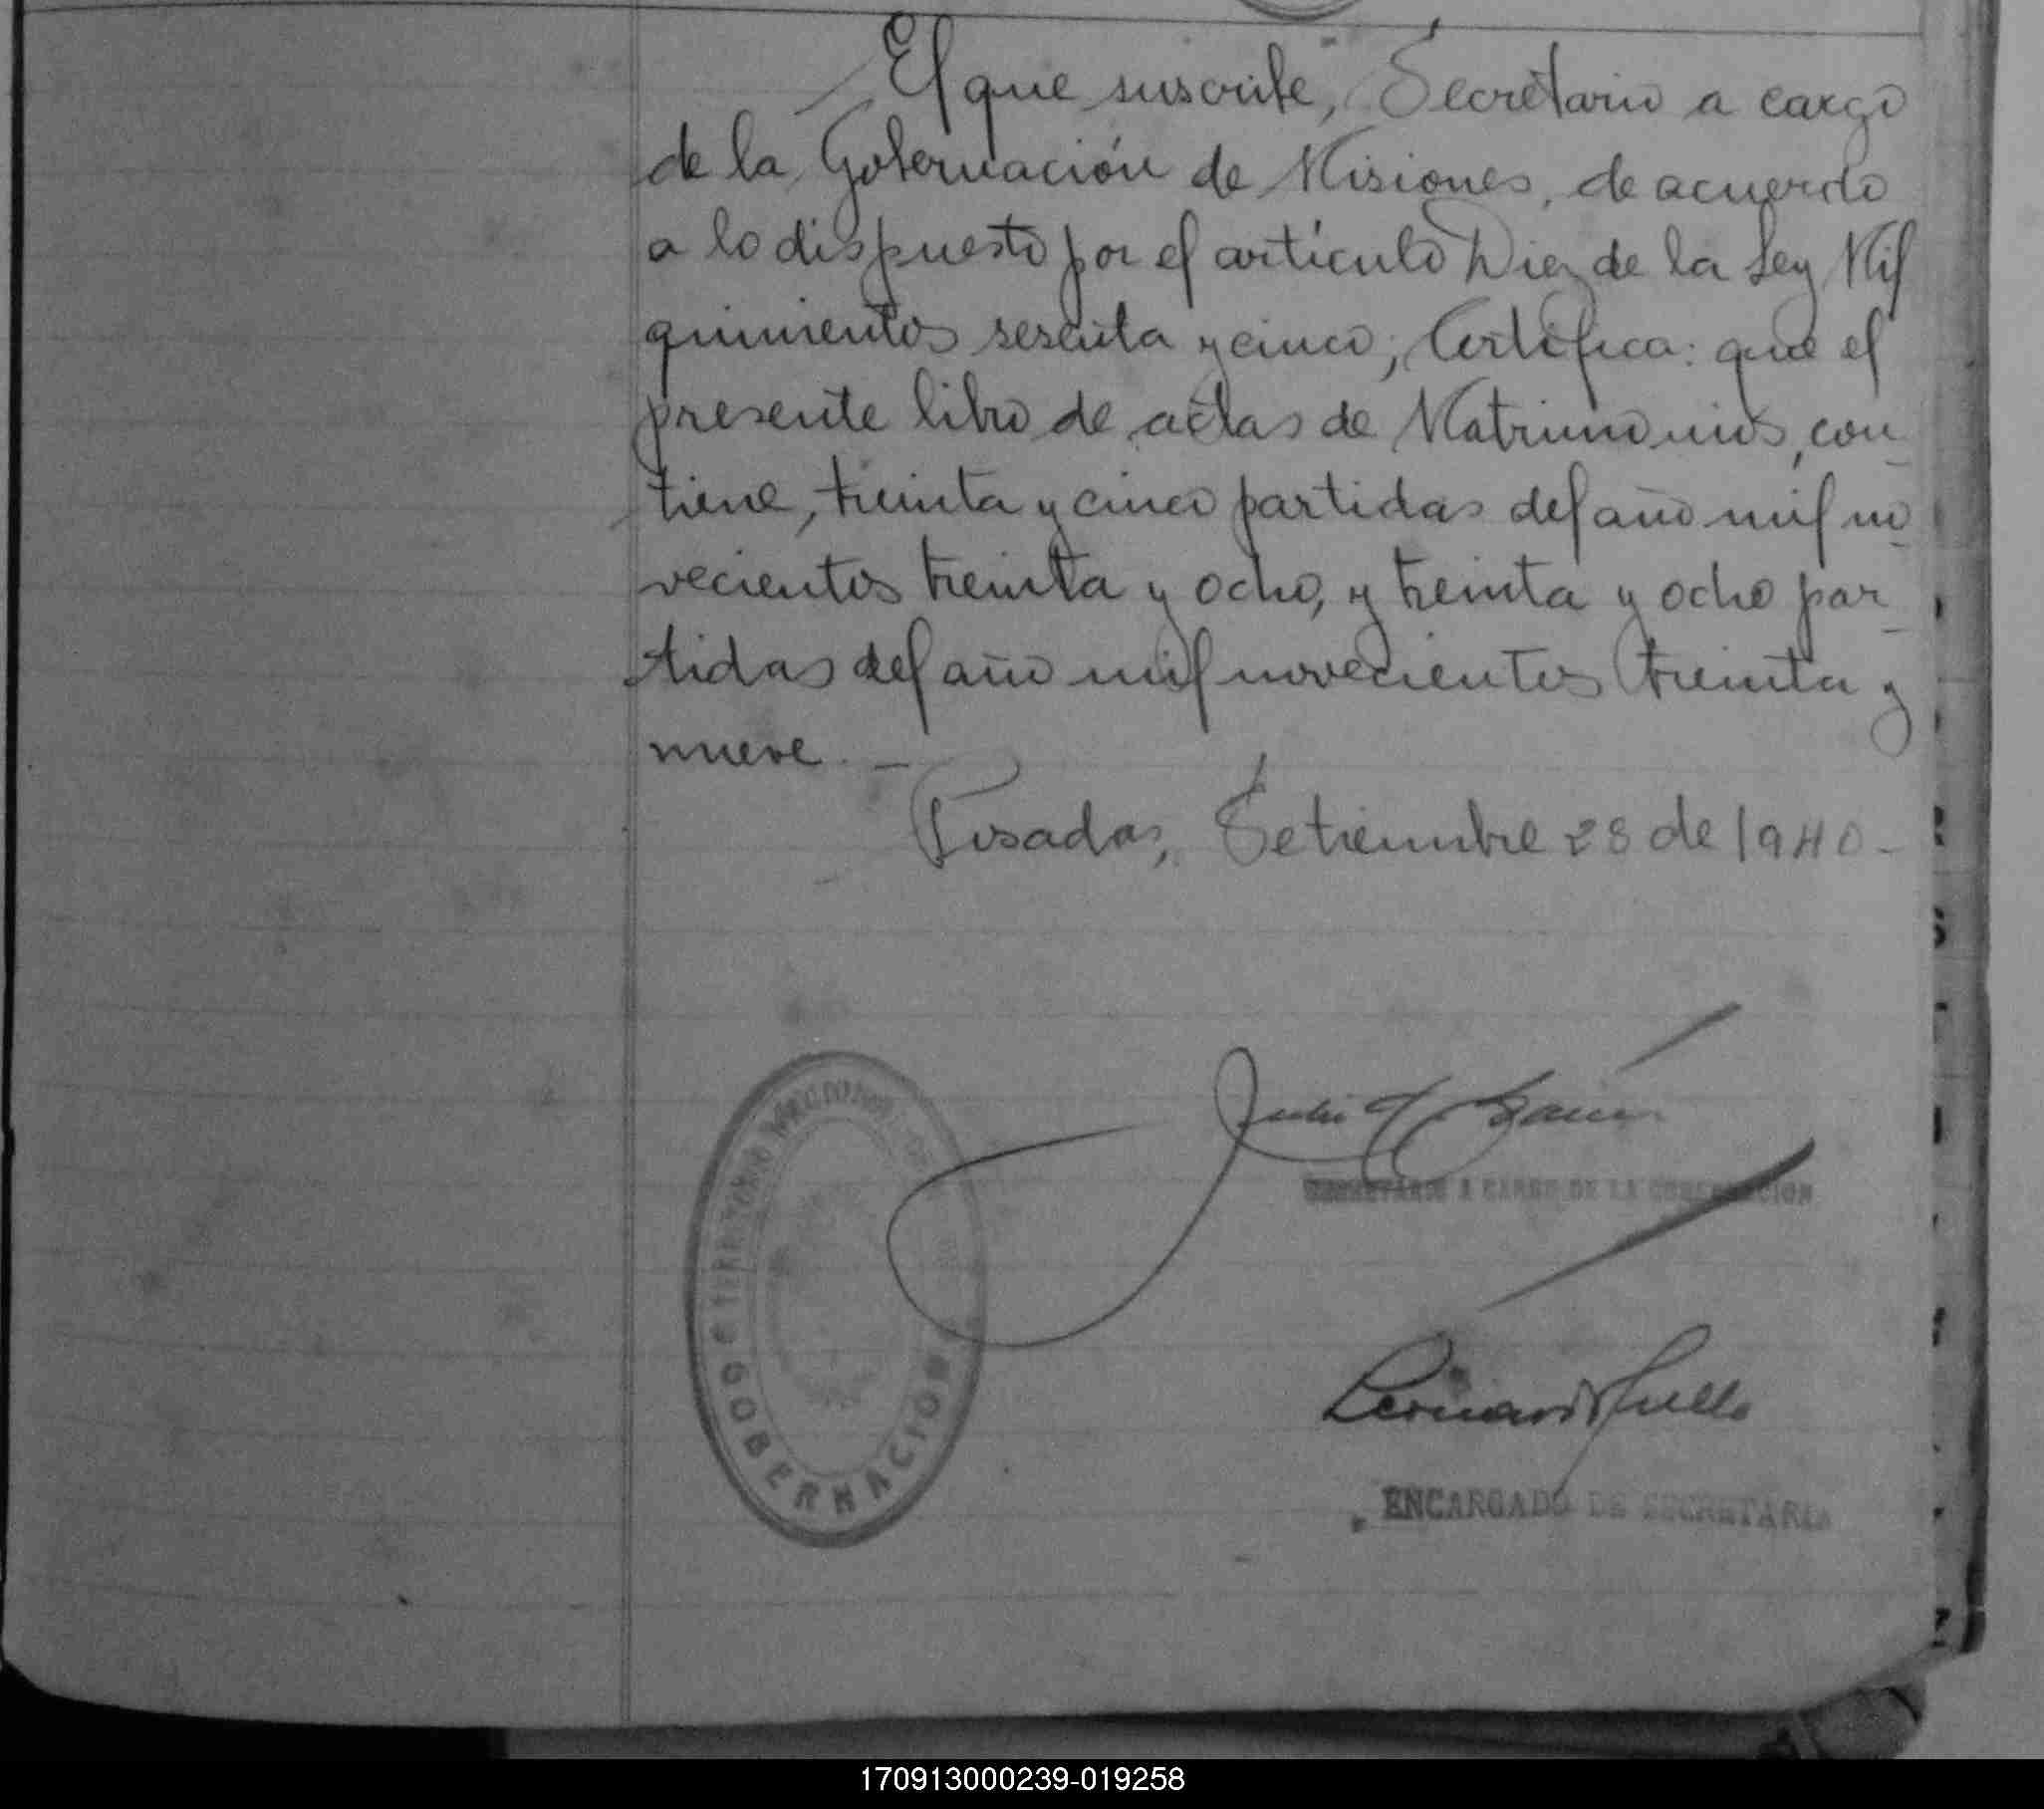 El que suscribe, Secretario a cargo
de la Gobernación de Misiones, de acuerdo
a lo dispuesto por el artículo Diez de la Ley Mil
quinientos sesenta y cinco; Certifica: que el
presente libro de actas de Matrimonios, con-
tiene, treinta y cinco partidas del año mil no-
vecientos treinta y ocho, y treinta y ocho par-
tidas del año mil novecientos treinta y
nueve. -
Posadas, Setiembre 28 de 1940-
TERRITORIO NACIONAL
GOBERNACION
SECRETARIO A CARGO DE LA GOBERNACION
ENCARGADO DE SECRETARIA
170913000239-019258